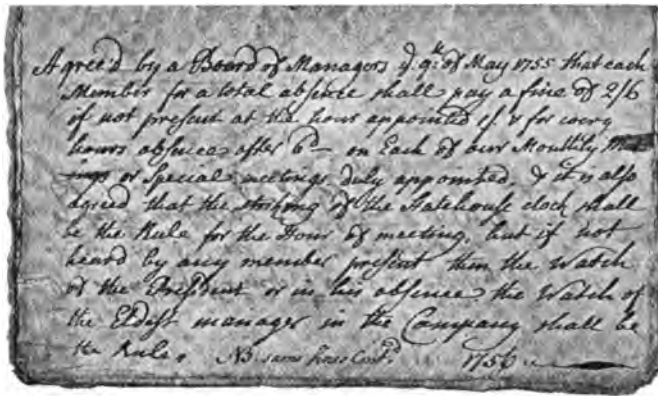 Agree'd by a Board of Managers ye 9th of May 1755 that each
Member for a total absence shall pay a fine of 2/6
if not present at the hour appointed 1/ & for every
hours absence after 6d — on Each of our Monthly Meet
ings or Special meetings duly appointed. & it is also
agreed that the striking of the Statehouse clock shall
be the Rule for the Hour of meeting, but if not
heard by any member present then the Watch
of the President or in his absence the Watch of
the Eldest manager in the Company shall be
the Rule. NB. same fines Contd. 1756